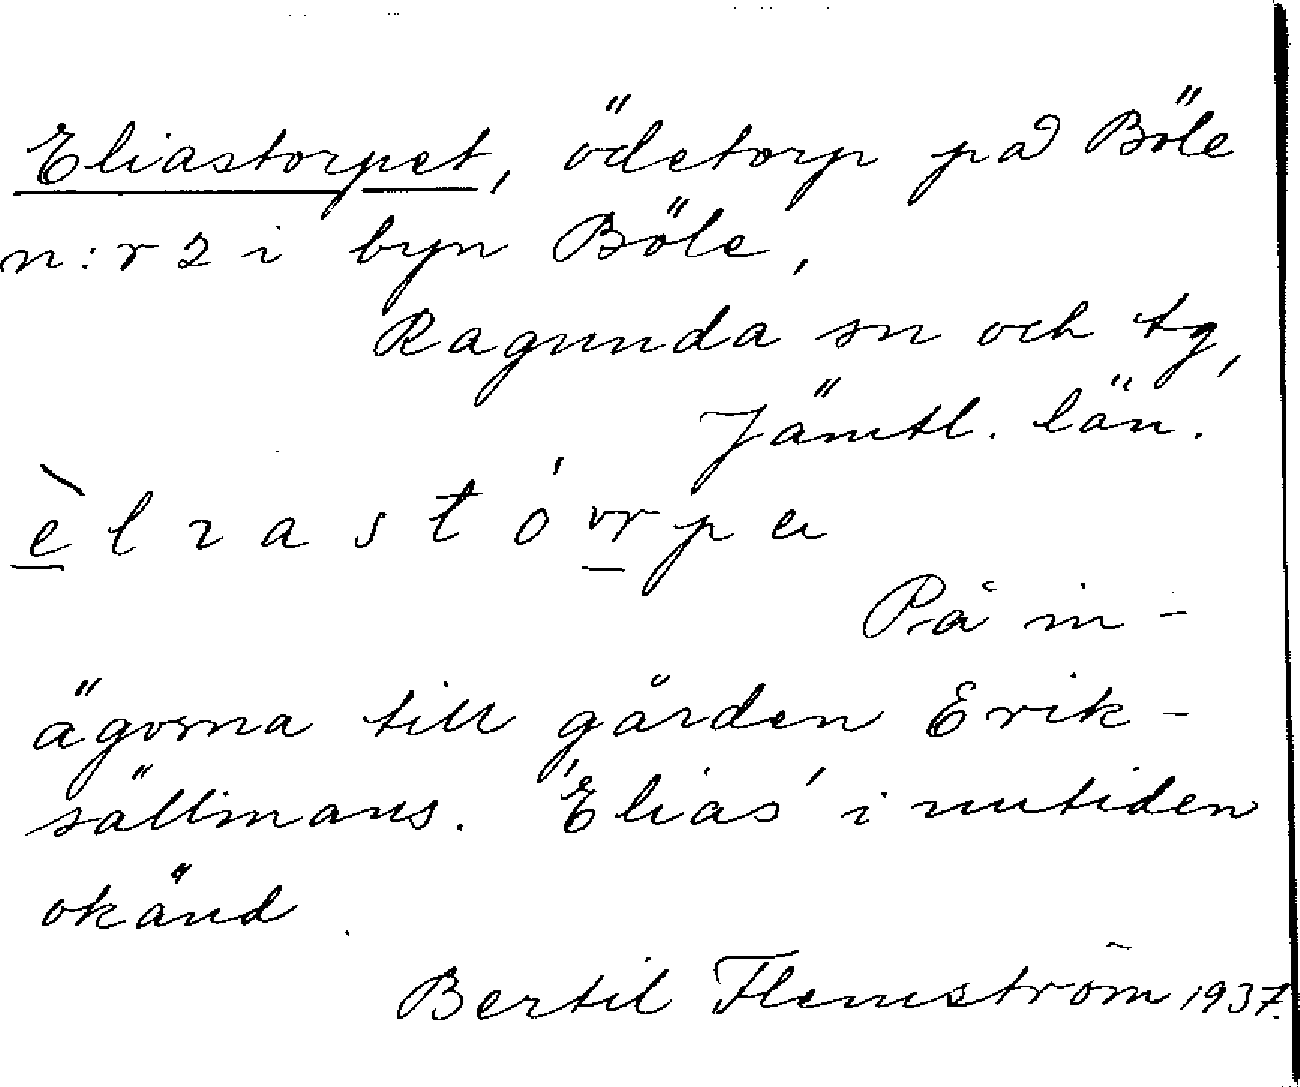 Eliastorpet, ödetorp på Böle
n:r 2 i byn Böle,
Ragunda sn och tg,
Jämtl. län.
è l ɩ a s t ó r p a
På in-
ägorna till gården Erik-
sällmans. 'Elias' i nutiden
okänd.
Bertil Flemström 1937.